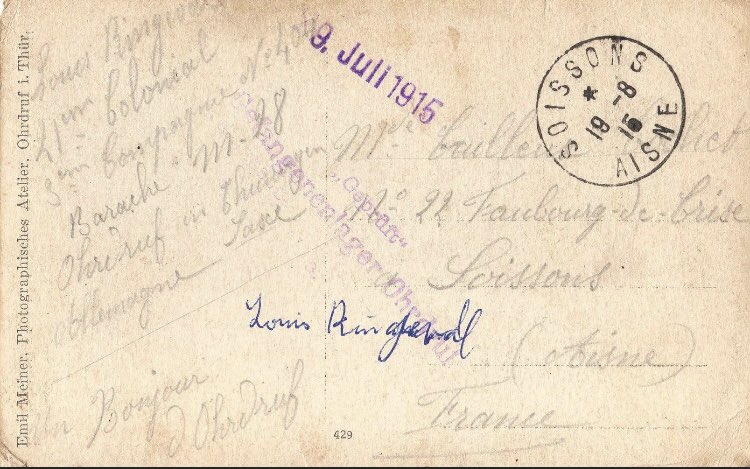 Emil Meiner, Photographisches Atelier, Ohrdruf i. Thür.
Louis Ringeval
21em Colonial
3em Compagnie No 4
Barache M-98
Ohrdruf in Thuringen
Allemagne Saxe
Un Bonjour
d'Ohrdruf
9. Juli 1915
"Geprüft"
Gefangenenlager Ohrdruf
SOISSONS
* 19 -8 15
AISNE
No 22 Faubourg-de-Crise
Soissons
(Aisne)
France
Louis Ringeval
429